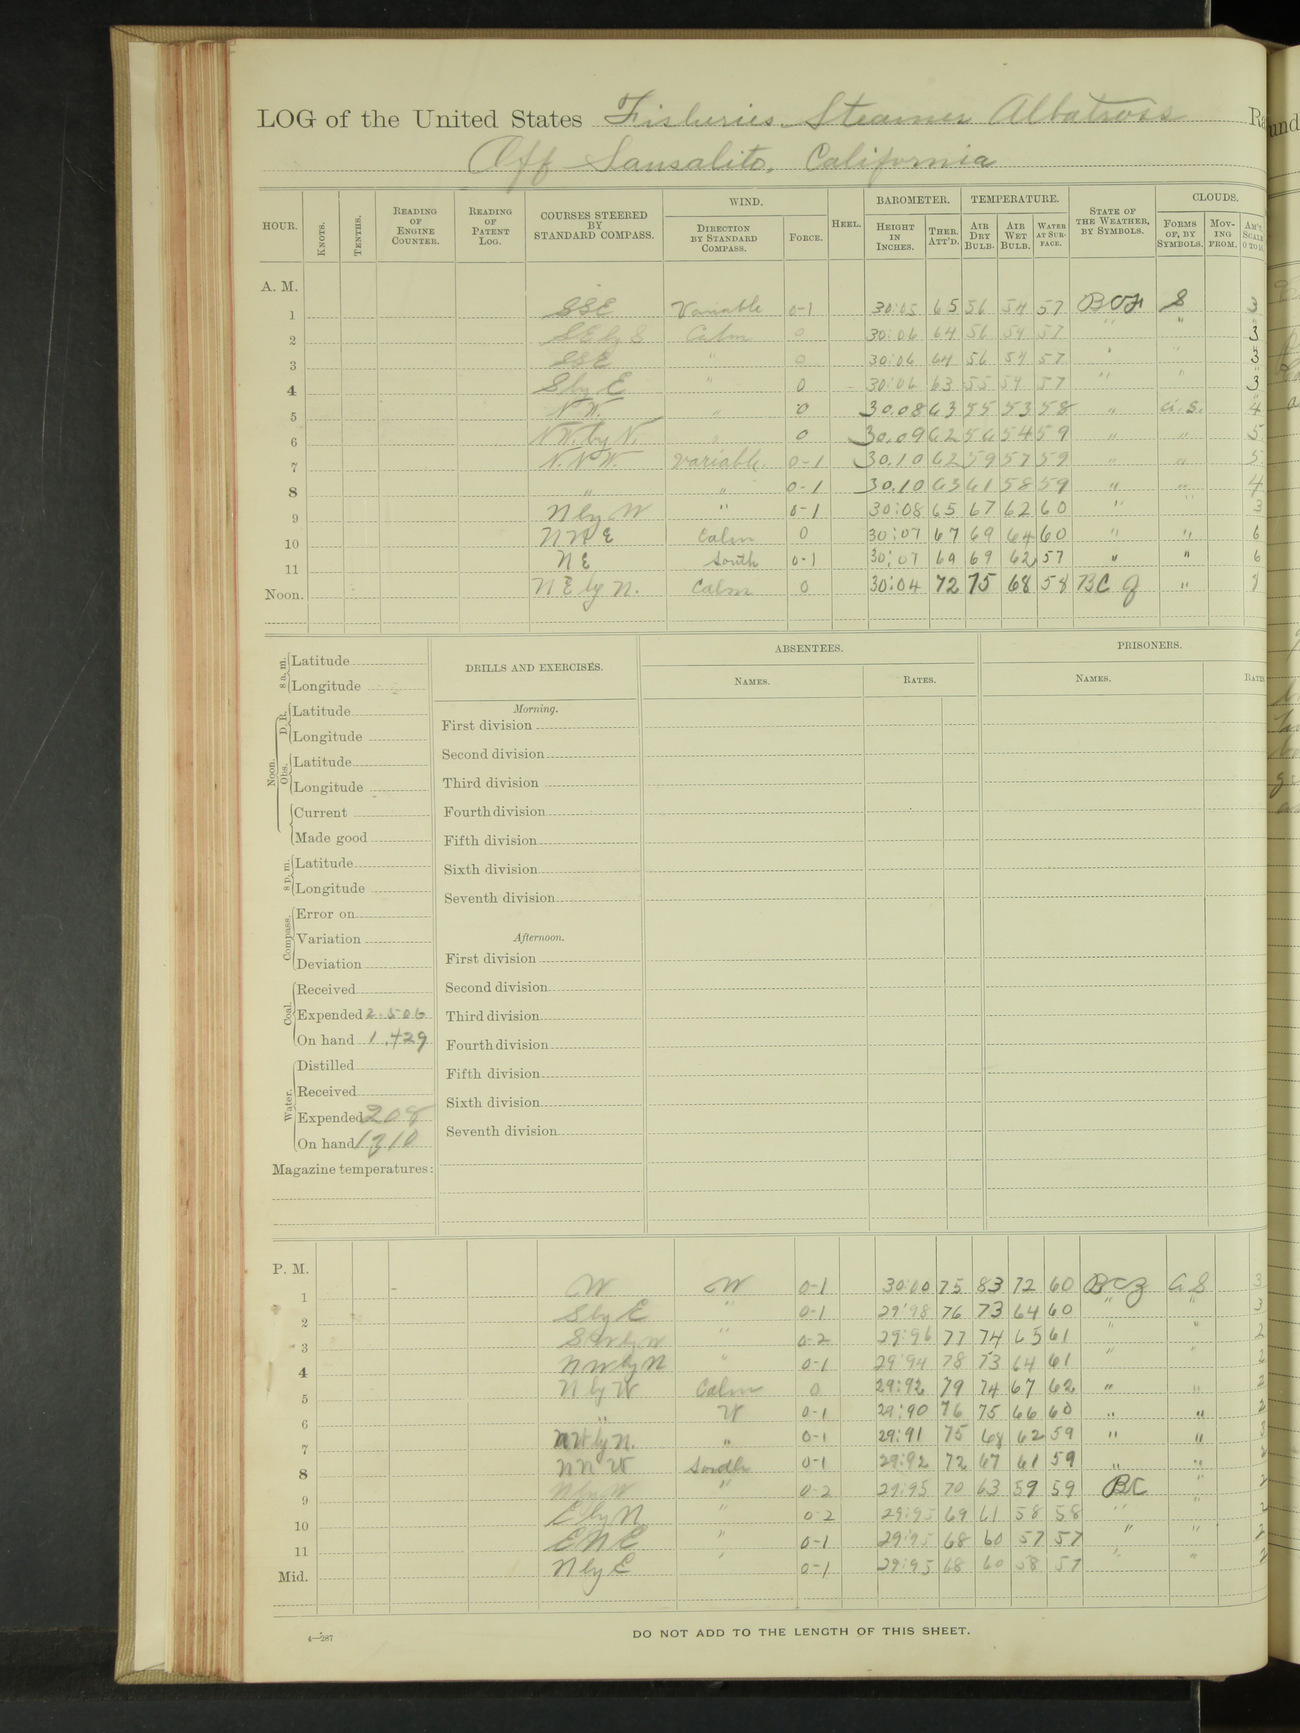 LOG of the United States Fisheries Steamer Albatross Ra
Off Sausalito, California
HOUR. KNOTS. TENTHS. READING OF ENGINE COUNTER. READING OF PATENT LOG. COURSES STEERED BY STANDARD COMPASS. WIND. DIRECTION BY STANDARD COMPASS. FORCE. HEEL. BAROMETER. HEIGHT IN INCHES. THER. ATT'D. TEMPERATURE. AIR DRY BULB. AIR WET BULB. WATER AT SURFACE. STATE OF THE WEATHER, BY SYMBOLS. CLOUDS. FORMS OF, BY SYMBOLS. MOVING FROM. AM'T, SCALE 0 TO 10
A. M.
1 SSE Variable 0-1 30:05 65 56 54 57 S 3
2 SE by S Calm 0 30:06 64 56 54 57 " " 3
3 SSE " 0 30:06 64 56 54 57 " " 3
4 S by E " 0 30:06 63 55 54 57 " " 3
5 N.W. " 0 30.08 63 55 53 58 " Ci. S. 4
6 N.W. by N. " 0 30.09 62 56 54 59 " " 5
7 N.N.W. Variable. 0-1 30.10 62 59 57 59 " " 5
8 " " 0-1 30.10 63 61 58 59 " " 4
9 N by W " 0-1 30:08 65 67 62 60 " " 3
10 NNE Calm 0 30:07 67 69 64 60 " " 6
11 NE South 0-1 30:07 69 69 62 57 " " 6
Noon. NE by N. Calm 0 30:04 72 75 68 58 BC "
8 a. m. Latitude
Longitude
Noon. D. R. Latitude
Longitude
Obs. Latitude
Longitude
Current
Made good
8 p. m. Latitude
Longitude
Compass. Error on
Variation
Deviation
Coal. Received
Expended 2.506
On hand 1.429
Water. Distilled
Received
Expended 208
On hand
Magazine temperatures:
DRILLS AND EXERCISES.
Morning.
First division
Second division
Third division
Fourth division
Fifth division
Sixth division
Seventh division
Afternoon.
First division
Second division
Third division
Fourth division
Fifth division
Sixth division
Seventh division
ABSENTEES.
NAMES. RATES.
PRISONERS.
NAMES. RATES
P. M.
1 W W 0-1 30:00 75 83 72 60 BCZ Ci S 3
2 S by E " 0-1 29:98 76 73 64 60 " " 3
3 SW by W " 0-2 29:96 77 74 65 61 " " 2
4 NW by N " 0-1 29:94 78 73 64 61 " " 2
5 N by W Calm 0 29:92 79 74 67 62 " " 2
6 " W 0-1 29:90 76 75 66 60 " " 2
7 NW by N. " 0-1 29:91 75 68 62 59 " " 3
8 NNW South 0-1 29:92 72 67 61 59 " " 2
9 N by W " 0-2 29:95 70 63 59 59 BC " 2
10 E by N " 0-2 29:95 69 61 58 58 " " 2
11 ENE " 0-1 29:95 68 60 57 57 " " 2
Mid. N by E " 0-1 29:95 68 60 58 57 " " 2
4—287
DO NOT ADD TO THE LENGTH OF THIS SHEET.